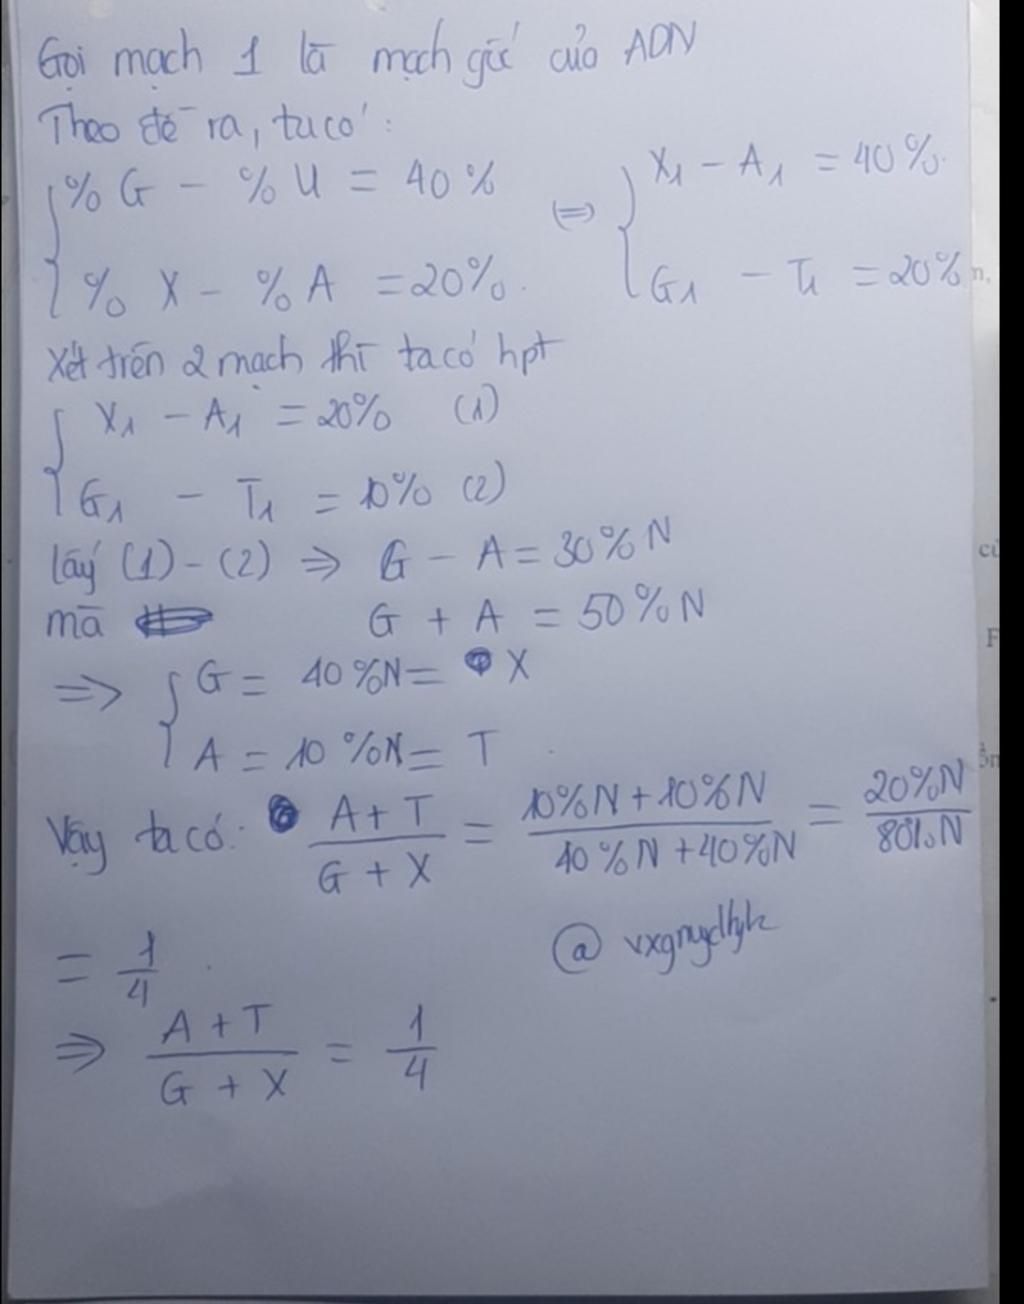 Gọi mạch 1 là mạch gốc của ADN
Theo đề ra, ta có:
%G - %U = 40% ⇔ X1 - A1 = 40%
%X - %A = 20% G1 - T1 = 20%
Xét trên 2 mạch thì ta có hpt
X1 - A1 = 20% (1)
G1 - T1 = 10% (2)
lấy (1) - (2) ⇒ G - A = 30%N
mà G + A = 50%N
⇒ G = 40%N = X
A = 10%N = T
Vậy ta có: A + T / G + X = 10%N + 10%N / 40%N + 40%N = 20%N / 80%N
= 1/4
⇒ A + T / G + X = 1/4